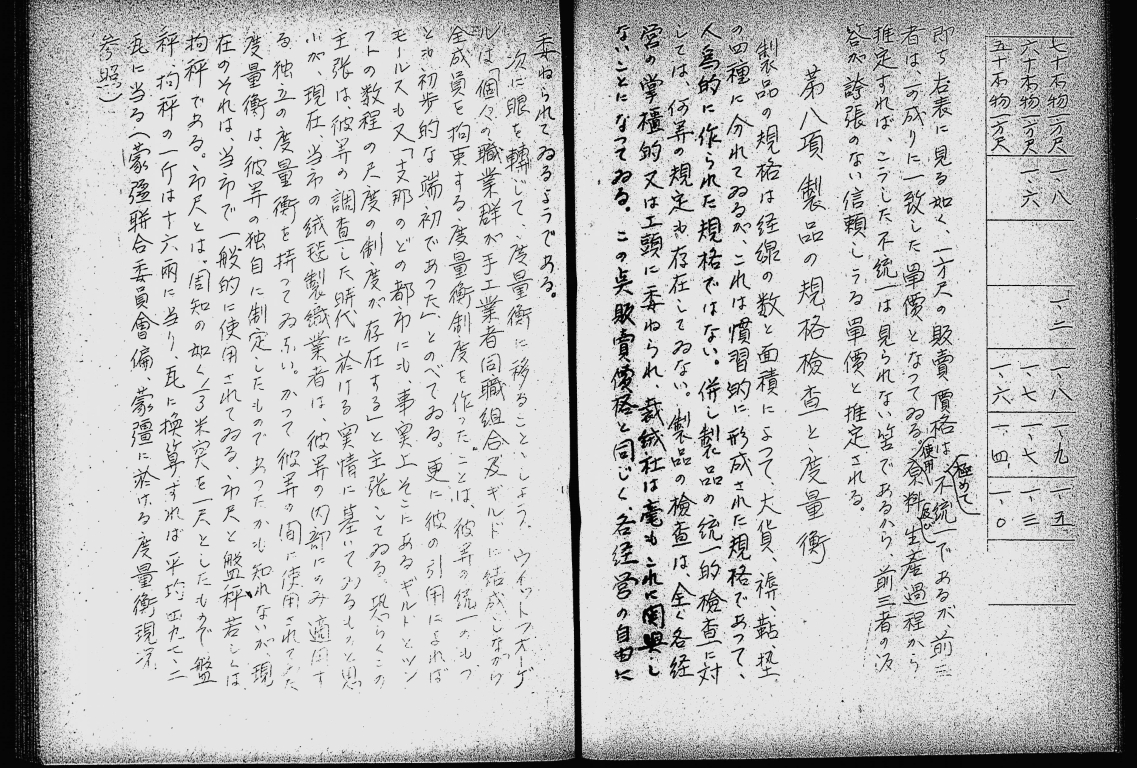 七十本物一方尺 一・八 一・二 一・八 一・九 一・五
六十本物一方尺 一・六 一・七 一・七 一・三
五十本物一方尺 一・六 一・四 一・〇
即ち右表に見る如く、一方尺の販賣價格は極めて不統一であるが、前三
者は、可成りに一致した單價となつてゐる。使用原料及び生産過程から
推定すれば、こうした不統一は見られない筈であるから、前三者の
答が誇張のない信頼しうる單價と推定される。
第八項 製品の規格檢査と度量衡
製品の規格は経線の数と面積によつて、大貨、褥、鞊、墊、
の四種に分れてゐるが、これは慣習的に形成された規格であつて、
人爲的に作られた規格ではない。併し製品の統一的檢査に対
しては、何等の規定も存在してゐない。製品の檢査は、全く各経
営の掌櫃的又は工頭に委ねられ、裁絨社は毫もこれに関與し
ないことになつてゐる。この点販賣價格と同じく、各経営の自由に
委ねられてゐるようである。
次に眼を轉じて、度量衡に移ることゝしよう。ウイットフォーゲ
ルは「個々の職業群が手工業者同職組合及ギルドに結成しながら
全成員を拘束する、度量衡制度を作つたことは、彼等の統一のもつ
とも初歩的な端初であつた」とのべてゐる。更に彼の引用によれば
モールスも又「支那のどの都市にも、事実上そこにあるギルドとツン
フトの数程の尺度の制度が存在する」と主張してゐる。恐らくこの
主張は、彼等の調査した時代に於ける実情に基いてゐるものと思
ふが、現在、当市の絨毯製織業者は、彼等の内部にのみ適用す
る独立の度量衡を持つてゐない。かつて彼等の間に使用されてゐた
度量衡は、彼等の独自に制定したものであつたかも知れないが、現
在のそれは、当市で一般的に使用されてゐる、市尺と盤秤若しくは
拘秤である。市尺とは、周知の如く1/3米突を一尺としたもので盤
秤、拘秤の一斤は十六兩に当り、瓦に換算すれば平均五九七、二
瓦に当る(蒙疆聯合委員會編 蒙疆に於ける度量衡現況
参照)